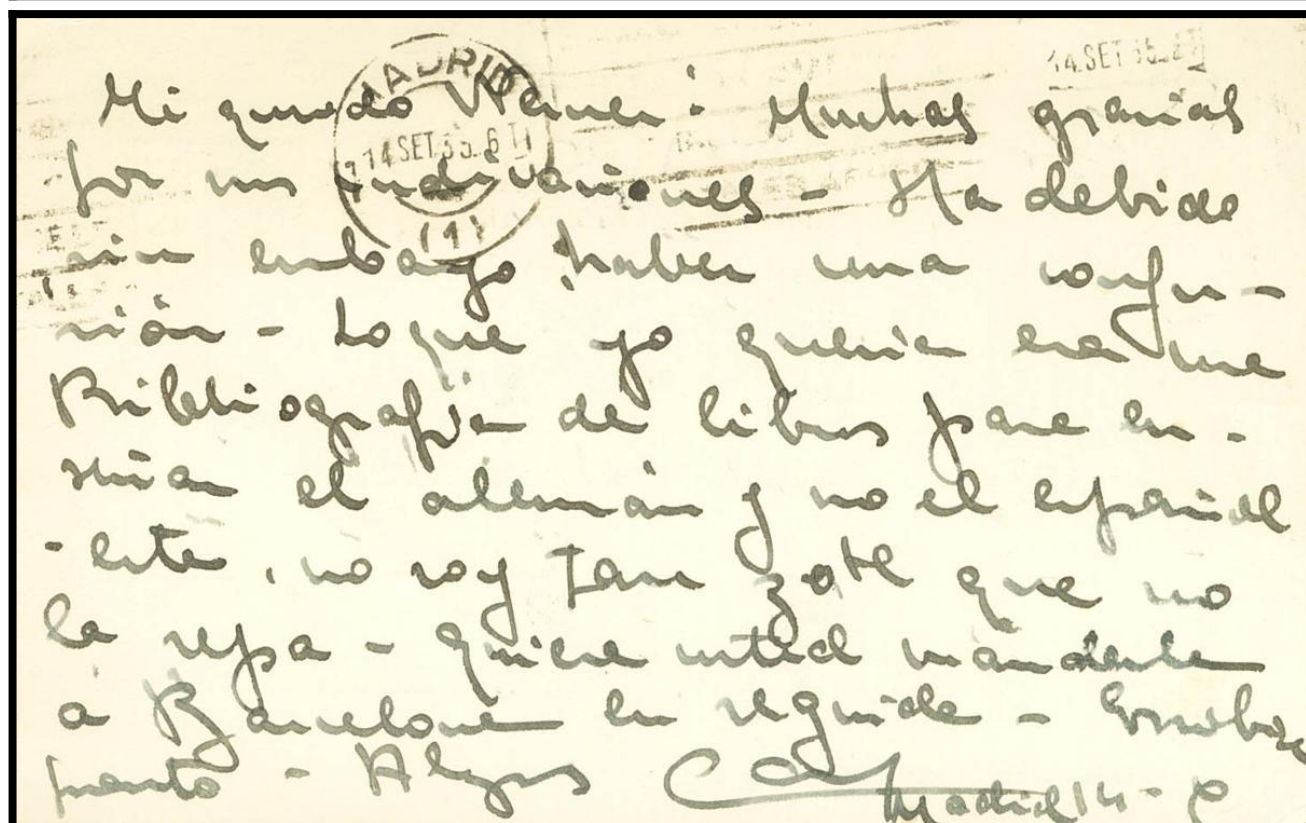 MADRID
14 SET 35. 6 T
(1)
14 SET 35
Mi querido Werner: Muchas gracias
por sus indicaciones - Ha debido
sin embargo haber una confu-
sión - Lo que yo queria era una
Bibliografía de libros para en-
señar el alemán y no el español
- este, no soy tan zote que no
la sepa - Quiere usted mandarla
a Barcelona en seguida - Escribiré
pronto - Abzos
Madrid 14 -